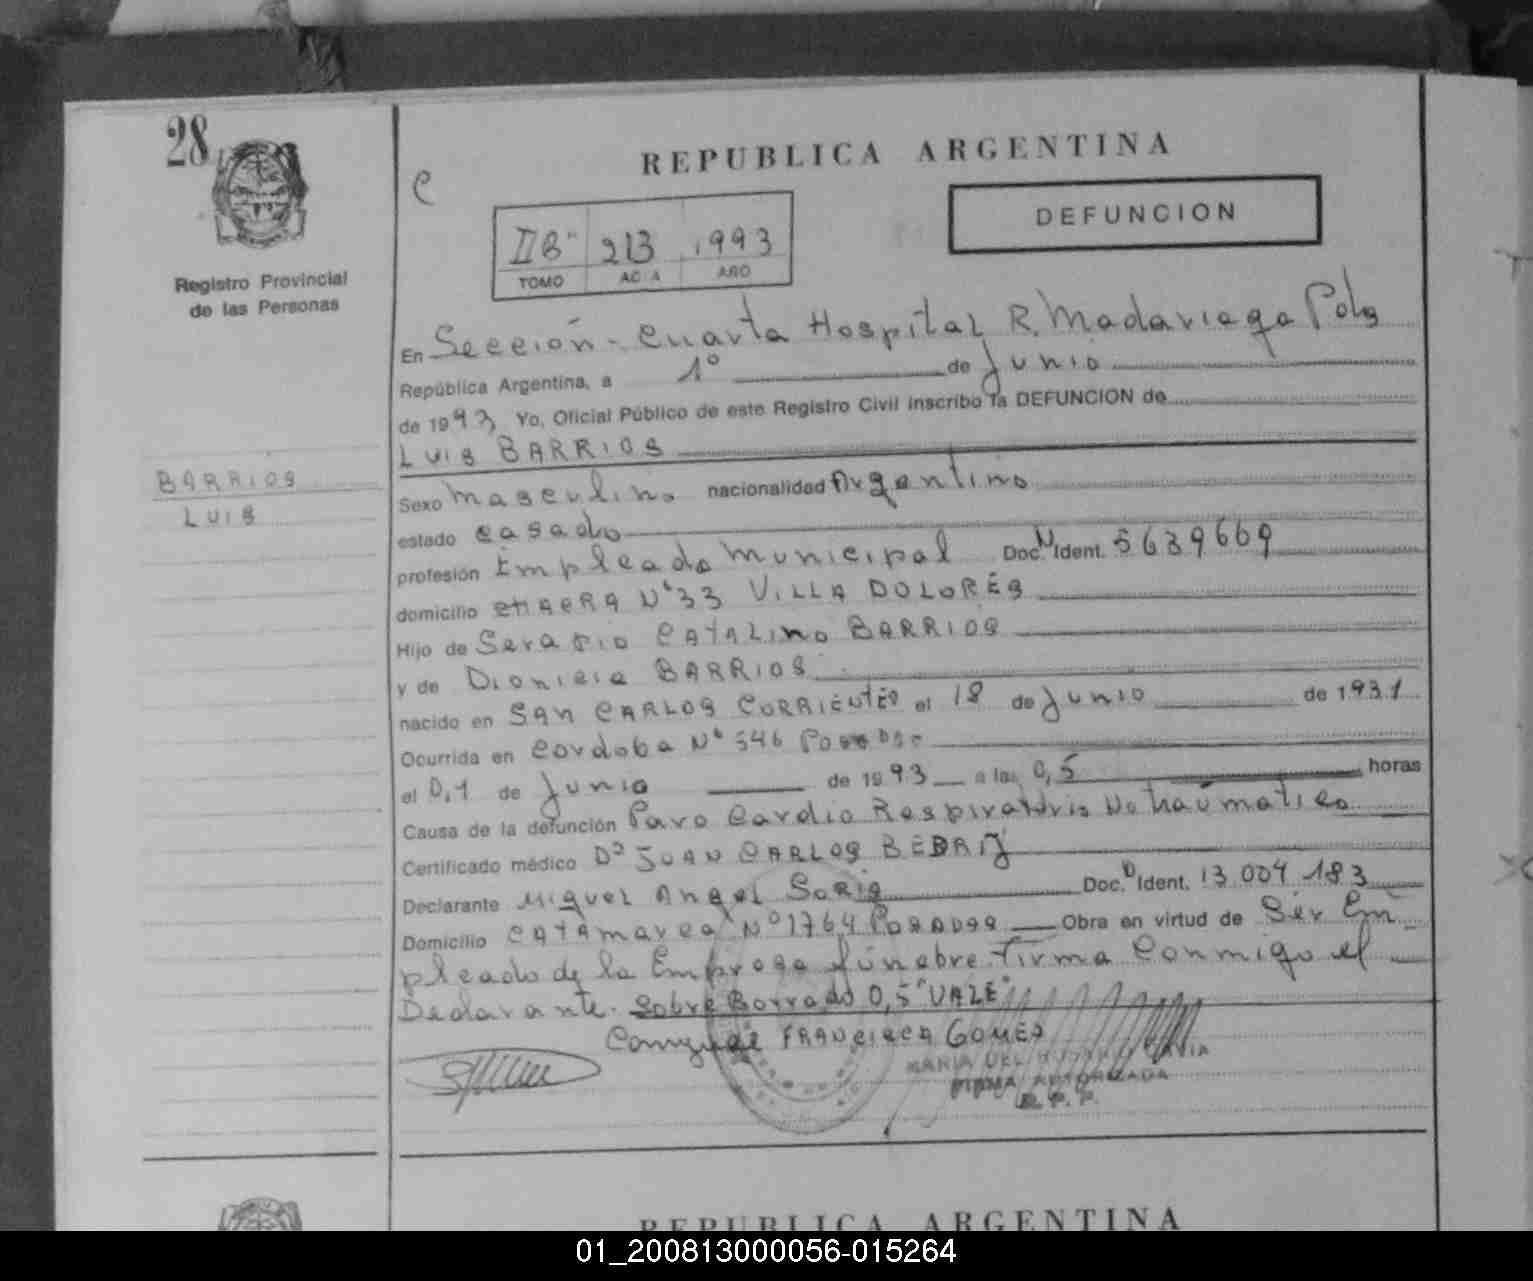 28
REPUBLICA ARGENTINA
DEFUNCION
IIB 213 1993
TOMO ACTA AÑO
Registro Provincial
de las Personas
BARRIOS
LUIS
En Sección - Cuarta Hospital R. Madariaga Pdas
República Argentina, a 1º de Junio
de 1993 Yo, Oficial Público de este Registro Civil inscribo la DEFUNCION de
LUIS BARRIOS
Sexo masculino nacionalidad Argentino
estado casado
profesión Empleado Municipal Doc. N Ident. 5639669
domicilio Nº 33 VILLA DOLORES
Hijo de CATALINO BARRIOS
y de Dionicia BARRIOS
nacido en SAN CARLOS CORRIENTES el 18 de Junio de 1931
Ocurrida en Cordoba Nº 546 Posadas
el 0,1 de Junio de 1993 a las 0,5 horas
Causa de la defunción Paro Cardio Respiratorio No traumatico
Certificado médico Dº JUAN CARLOS BEDRIJ
Declarante Miguel Angel Soria Doc. D Ident. 13.004.183
Domicilio CATAmarca Nº 1764 POSADAS Obra en virtud de Ser Em
pleado de la Empresa fúnebre. Firma Conmigo el
Declarante. Sobre Borrado 0,5 "VALE"
Conyuge FRANCISCA GOMES
MARIA DEL
FIRMA AUTORIZADA
R. P. P.
REPUBLICA ARGENTINA
01_200813000056-015264